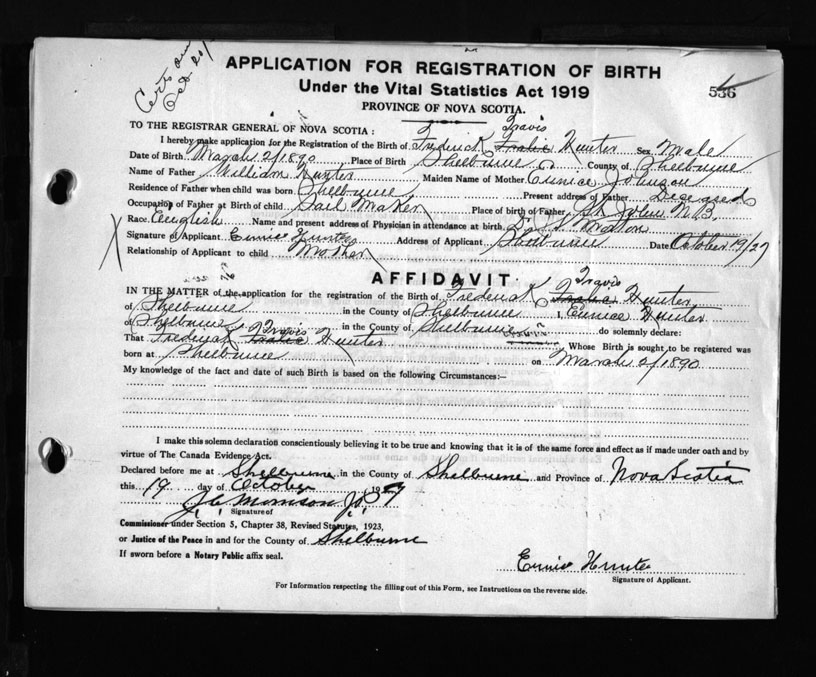 Certs
Oct 20/
APPLICATION FOR REGISTRATION OF BIRTH
Under the Vital Statistics Act 1919
PROVINCE OF NOVA SCOTIA.
536
TO THE REGISTRAR GENERAL OF NOVA SCOTIA :
Travis
I hereby make application for the Registration of the Birth of Frederick Hunter Sex Male
Date of Birth March 2/1890 Place of Birth Shelburne County of Shelburne
Name of Father William Hunter Maiden Name of Mother Eunice Johnson
Residence of Father when child was born Shelburne Present address of Father Deceased
Occupation of Father at Birth of child Sail Maker Place of birth of Father St. John N.B.
Race English Name and present address of Physician in attendance at birth Dr
Signature of Applicant Eunice Hunter Address of Applicant Shelburne Date October 19/27
Relationship of Applicant to child Mother
AFFIDAVIT
Travis
IN THE MATTER of the application for the registration of the Birth of Frederick Hunter
of Shelburne in the County of Shelburne I, Eunice Hunter
of Shelburne in the County of Shelburne do solemnly declare:
Travis
That Frederick Hunter Whose Birth is sought to be registered was
born at Shelburne on March 2/1890
My knowledge of the fact and date of such Birth is based on the following Circumstances:—
I make this solemn declaration conscientiously believing it to be true and knowing that it is of the same force and effect as if made under oath and by
virtue of The Canada Evidence Act.
Declared before me at Shelburne in the County of Shelburne and Province of Nova Scotia
this 19 day of October 19
Morrison
Signature of
Commissioner under Section 5, Chapter 38, Revised Statutes, 1923,
or Justice of the Peace in and for the County of Shelburne
If sworn before a Notary Public affix seal.
Eunice Hunter
Signature of Applicant.
For Information respecting the filling out of this Form, see Instructions on the reverse side.